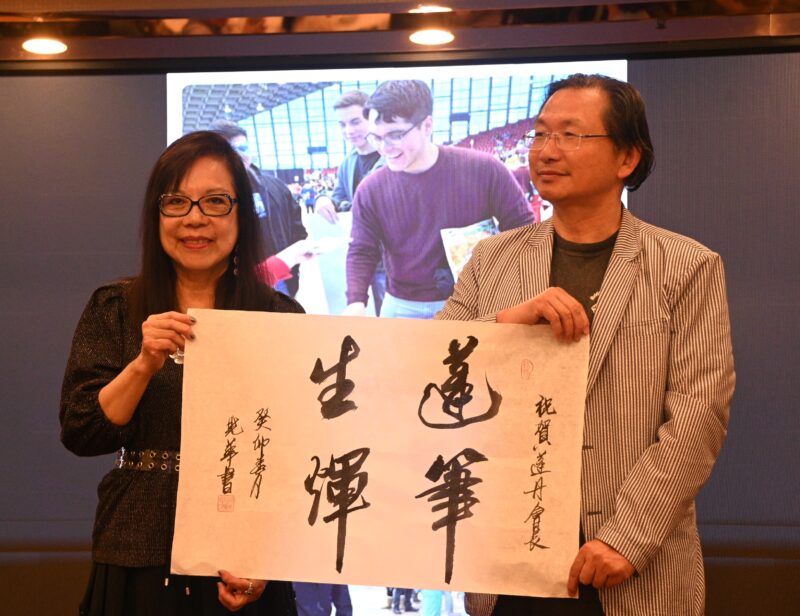 祝賀蓮丹會長
蓮筆
生輝
癸卯春月
書